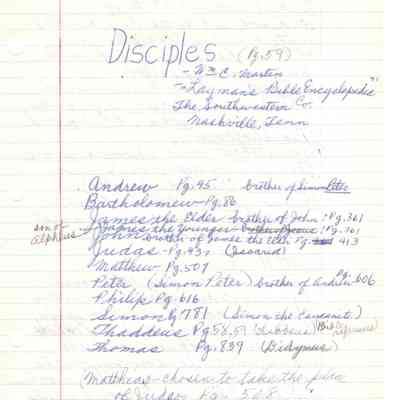 Disciples (Pg. 59)
- Wm C. Martin
"Layman's Bible Encyclopedia"
The Southwestern Co.
Nashville, Tenn
Andrew Pg. 45 brother of Simon Peter
Bartholomew Pg. 86
James the Elder brother of John; Pg. 361
son of Alpheus - James the Younger ; Pg. 361
John brother of James the Elder Pg. 413
Judas - Pg. 43 (Iscariot)
Matthew Pg. 507
Peter (Simon Peter) brother of Andrew Pg. 606
Philip Pg. 616
Simon Pg 781 (Simon the Canaanite.)
Thaddeus Pg. 58, 59 (Lebbeus)
Thomas Pg. 839 (Didymus)
(Matthias - chosen to take the place
of Judas Pg. 508